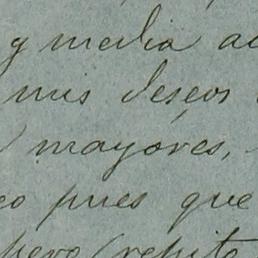 y media
mis deseos
mayores,
pues que
pero (repito